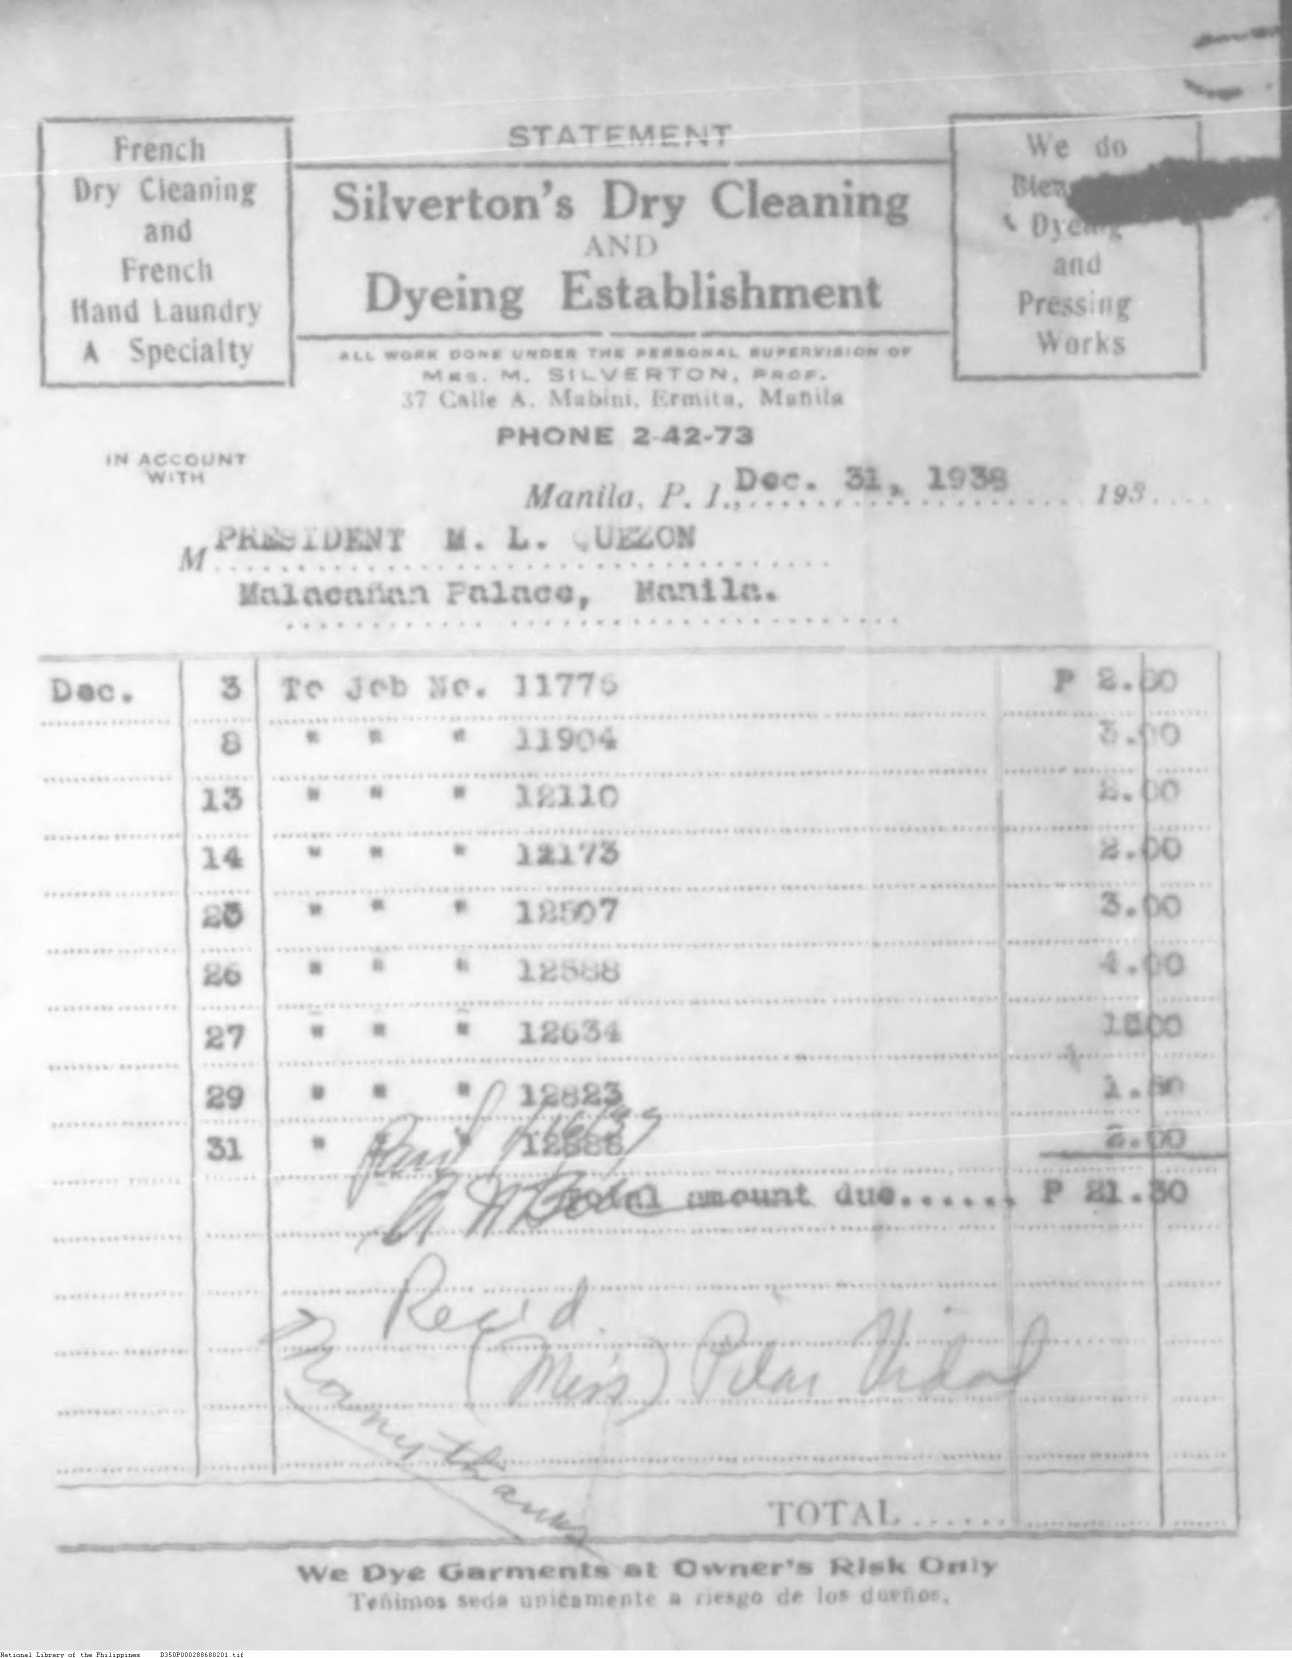 STATEMENT
French
Dry Cleaning
and
French
Hand Laundry
A Specialty
Silverton's Dry Cleaning
AND
Dyeing Establishment
We do
Dyeing
and
Pressing
Works
ALL WORK DONE UNDER THE PERSONAL SUPERVISION OF
MRS. M. SILVERTON, PROP.
37 Calle A. Mabini, Ermita, Manila
PHONE 2-42-73
IN ACCOUNT
WITH
Manila, P. I., Dec. 31, 1938 193
M PRESIDENT M. L. QUEZON
Malacañan Palace, Manila.
Dec. 3 To Job No. 11776 P 2.
8 " " " 11904 3.00
13 " " " 12110 2.00
14 " " " 12173 2.00
" " " 12507 3.00
26 " " " 12588 4.00
27 " " " 12634
29 " " " 12823 1.
31 " " 2.00
Total amount due...... P 21.30
Rec'd.
(Miss) Pilar Vidal
Many thanks
TOTAL
We Dye Garments at Owner's Risk Only
Teñimos seda unicamente a riesgo de los dueños.
National Library of the Philippines D350P000288680201.tif